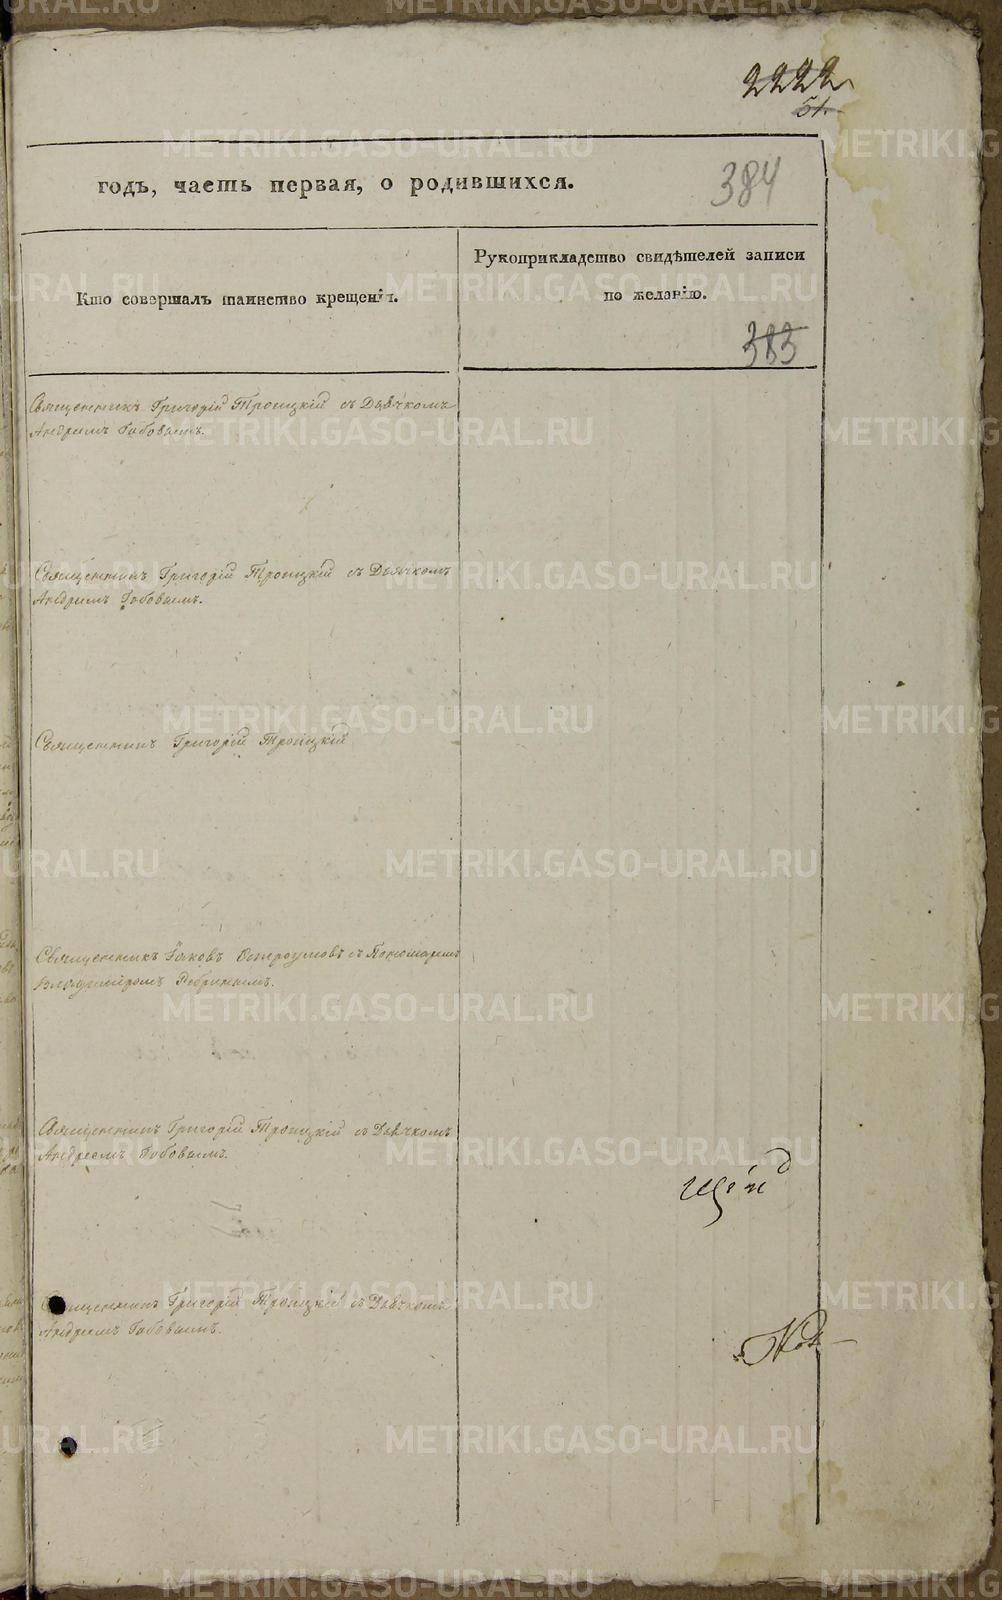 2222
51.
годъ, часть первая, о родившихся.
384
Кто совершалъ таинство крещенія.
Рукоприкладство свидѣтелей записи
по желанію.
383
Священникъ Григорій Троицкій съ Дьячкомъ
Андреемъ Бабовымъ.
Священникъ Григорій Троицкій съ Дьячкомъ
Андреемъ Бабовымъ.
Священникъ Григорій Троицкій
Священникъ Іаковъ Остроумовъ съ Пономаремъ
Владиміромъ Ребринымъ.
Священникъ Григорій Троицкій съ Дьячкомъ
Андреемъ Бабовымъ.
Священникъ Григорій Троицкій съ Дьячкомъ
Андреемъ Бабовымъ.
METRIKI.GASO-URAL.RU